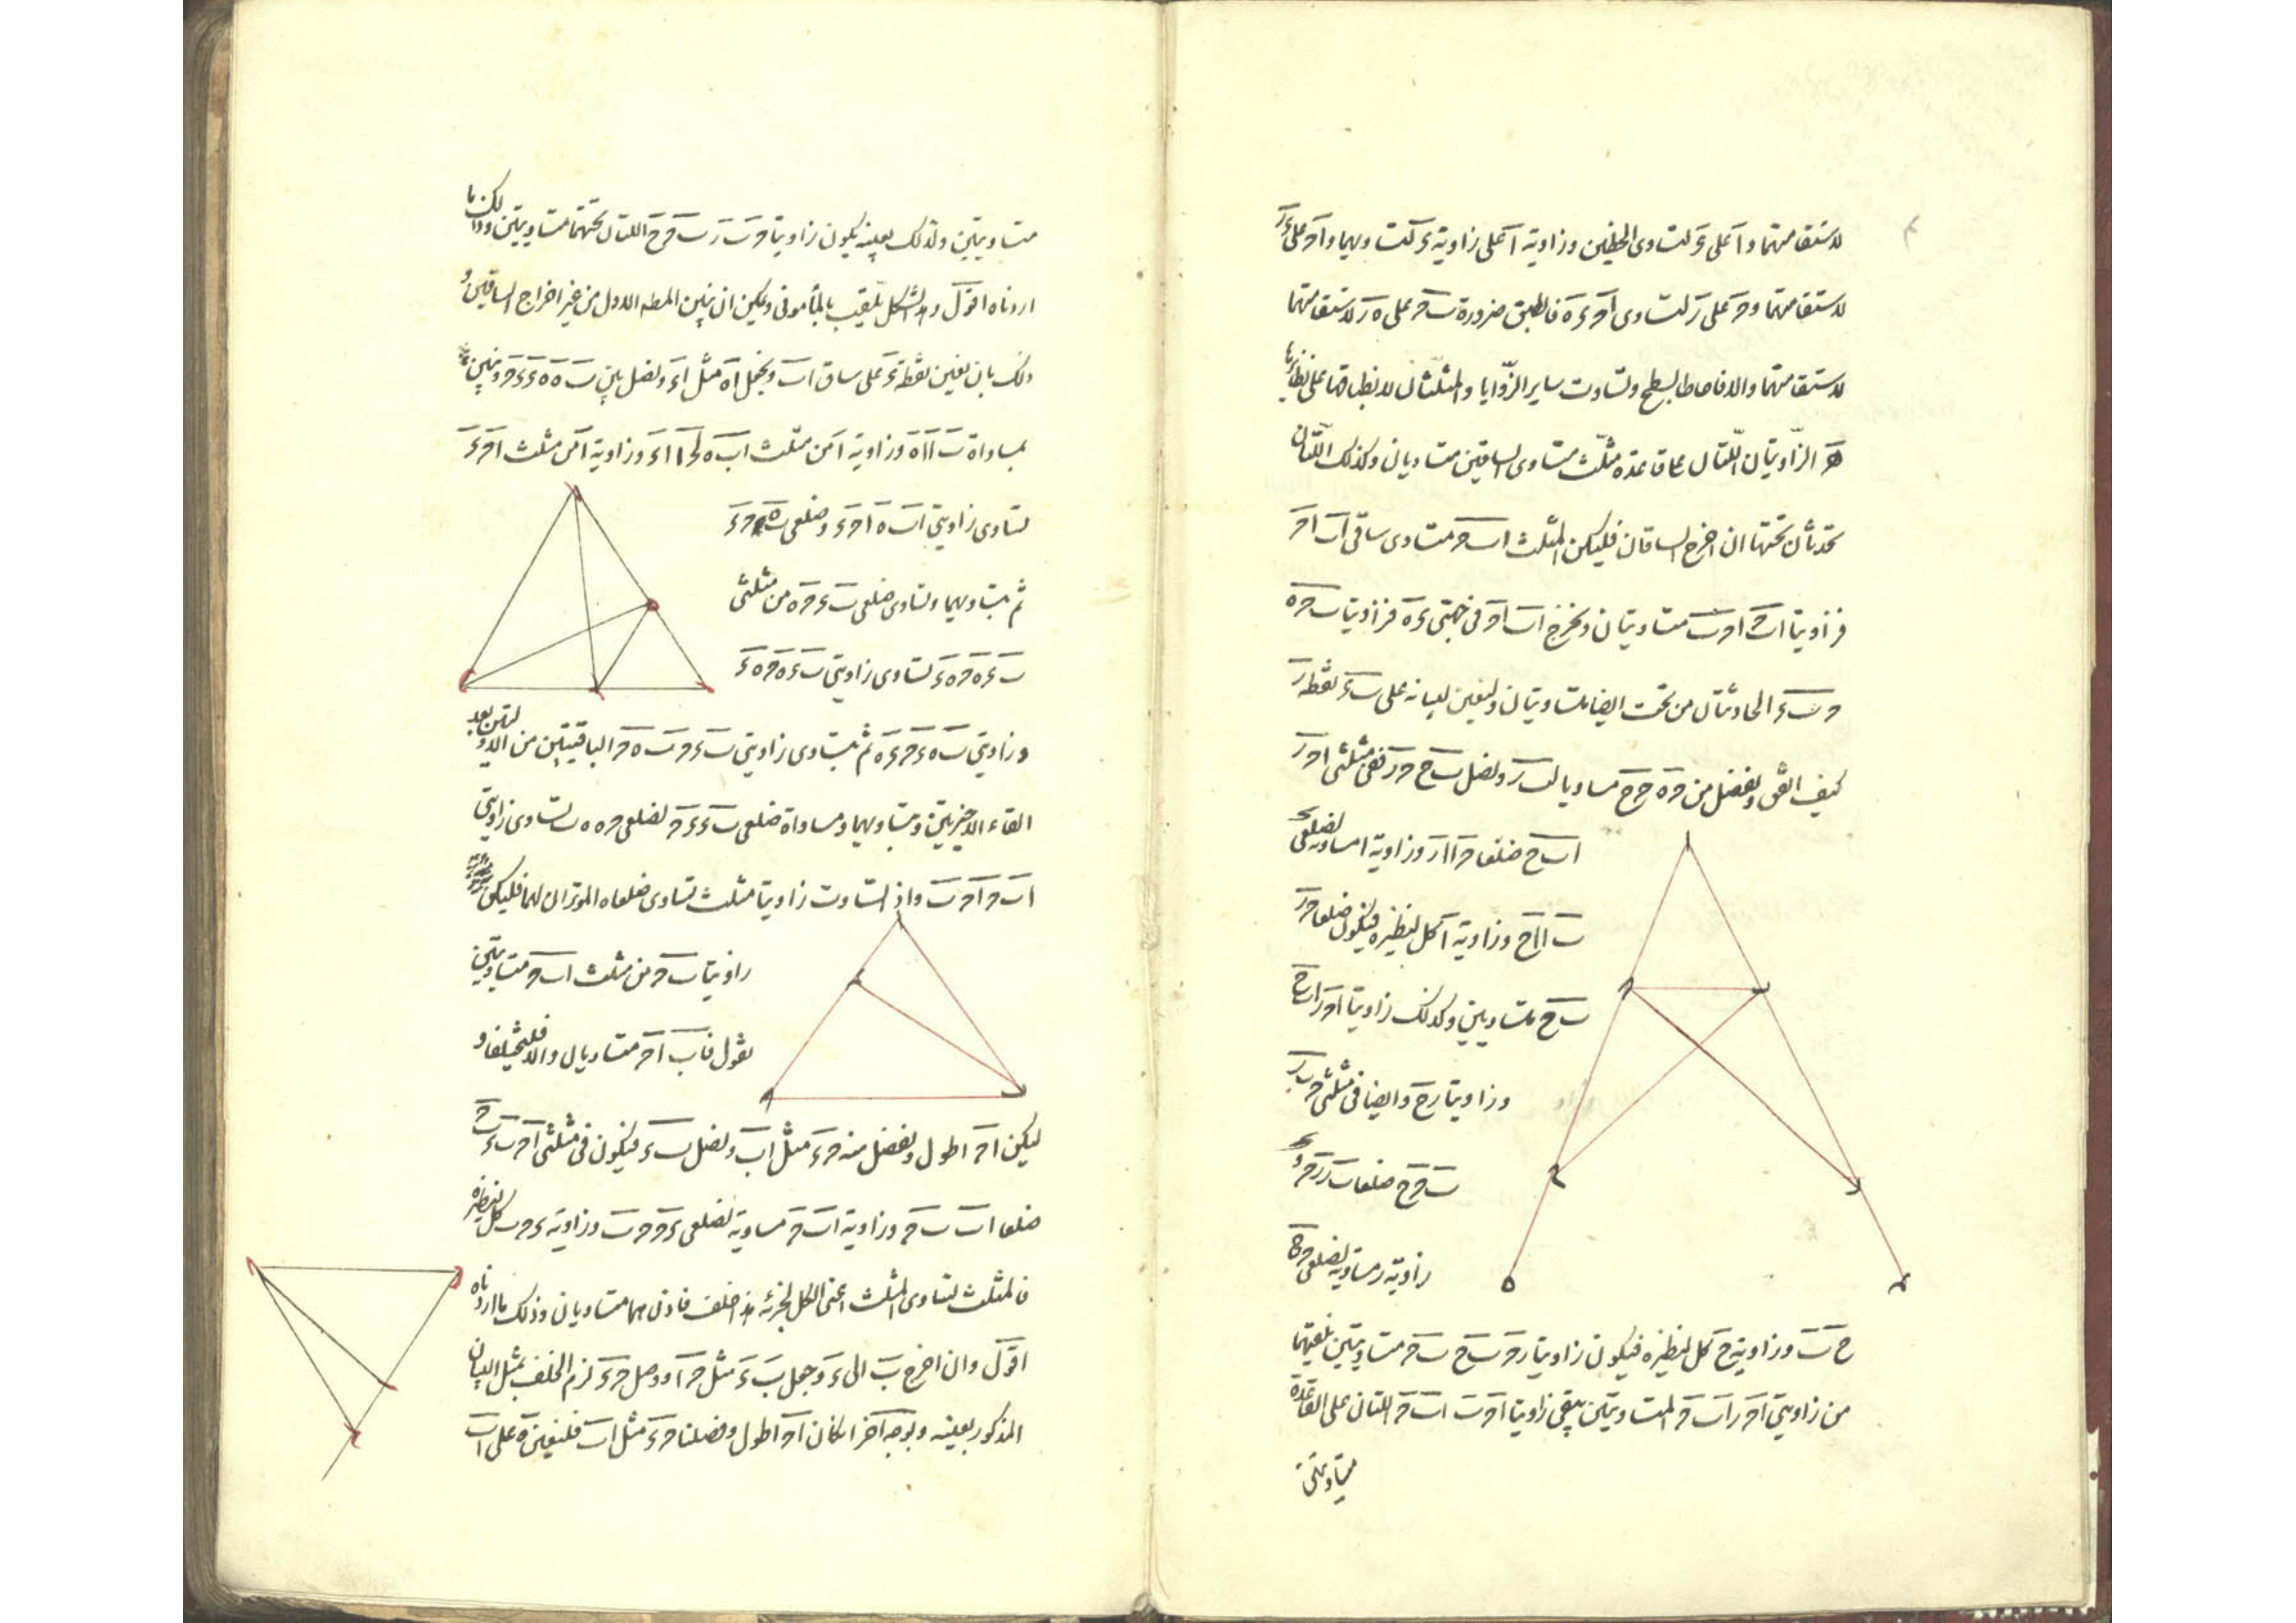 لاستقامتهما وآ على ءَ لتساوى الخطين وزاوية آ على زاوية ءَ لتساويهما واحَ على ءرَ
لاستقامتهما وحَ على رَ لتساوى احَ ءهَ فانطبق ضرورة بحَ على هرَ لاستقامتهما
لاستقامتهما والا فاحاطا بسطح وتساوت ساير الزّوايا والمثلّثان لانطباقها على نظايرها
هَ الزّاويتان اللّتان على قاعدة مثلّث متساوى الساقين متساويان وكذلك اللّتان
تحدثان تحتها ان اخرج الساقان فليكن المثلث ابحَ متساوى ساقى ابَ احَ
فزاويتا ابحَ احبَ متساويتان ونخرج ابَ احَ فى جهتى ءَ هَ فزاويتا بحهَ
حبءَ الحادثتان من تحت ايضا متساويتان ولنعين لبيانه على بءَ نقطة رَ
كيف اتفق ونفصل من حهَ ححَ مساويا لبرَ ونصل بحَ حرَ ففى مثلثى احرَ
ابحَ ضلعا حا ارَ وزاوية ا مساوية لضلعى
با احَ وزاوية آ كل لنظيره فيكون ضلعا حرَ
بحَ متساويين وكذلك زاويتا احرَ ابحَ
وزاويتا رَ حَ وايضا فى مثلثى حبرَ
بححَ ضلعا بررحَ و
زاوية رَ مساوية لضلعى ححَ
حبَ وزاوية حَ كل لنظيره فيكون زاويتا رحبَ حبحَ متساويتين نلقيهما
من زاويتى احرَ ابحَ المتساويتين يبقى زاويتا احبَ ابحَ اللتان على القاعدة
متساويتين
متساويتين ولذلك بعينه يكون زاويتا حبرَ بححَ اللتان تحتهما متساويتين وذلك ما
اردناه اقول وهذا الشكل يلقب بالمأمونى ويمكن ان نبين المطه الاول من غير اخراج الساقين و
ذلك بان نعين نقطة ءَ على ساق ابَ ونجعل اهَ مثل اءَ ونصل بين بهَ هءَ ءحَ ونبين
بمساواة با اهَ وزاوية ا من مثلث ابهَ لحا اءَ وزاوية ا من مثلث احءَ
تساوى زاويتى ابهَ احءَ وضلعى بهَ حءَ
ثم بتساويهما وتساوى ضلعى بءَ حهَ من مثلثى
بءهَ حهءَ تساوى زاويتى بءهَ حهءَ
وزاويتى بهءَ حءهَ ثم بتساوى زاويتى بءحَ بهحَ الباقيتين من الاوليين بعد
القاء الاخيرتين وبتساويهما ومساواة ضلعى بءَ ءحَ لضلعى حهَ هبَ تساوى زاويتى
ابحَ احبَ واذا تساوت زاويتا مثلث تساوى ضلعاه الموتران لهما فليكن
زاويتا بَ حَ من مثلث ابحَ متساويتين
نقول فابَ احَ متساويان والا فليختلفا و
ليكن احَ اطول ونفصل منه حءَ مثل ابَ ونصل بءَ فيكون فى مثلثى احبَ ءبحَ
ضلعا ابَ بحَ وزاوية ابحَ مساوية لضلعى ءحَ حبَ وزاوية ءحبَ كل لنظيره
فالمثلث لتساوى المثلث اعنى الكل لجزئه هذا خلف فاذن هما متساويان وذلك ما اردناه
اقول وان اخرج بَ الى ءَ وجعل بءَ مثل حا ووصل حءَ لزم الخلف بمثل البيان
المذكور بعينه وبوجه آخر ان كان احَ اطول وفصلنا حءَ مثل ابَ فلنعين هَ على ابَ